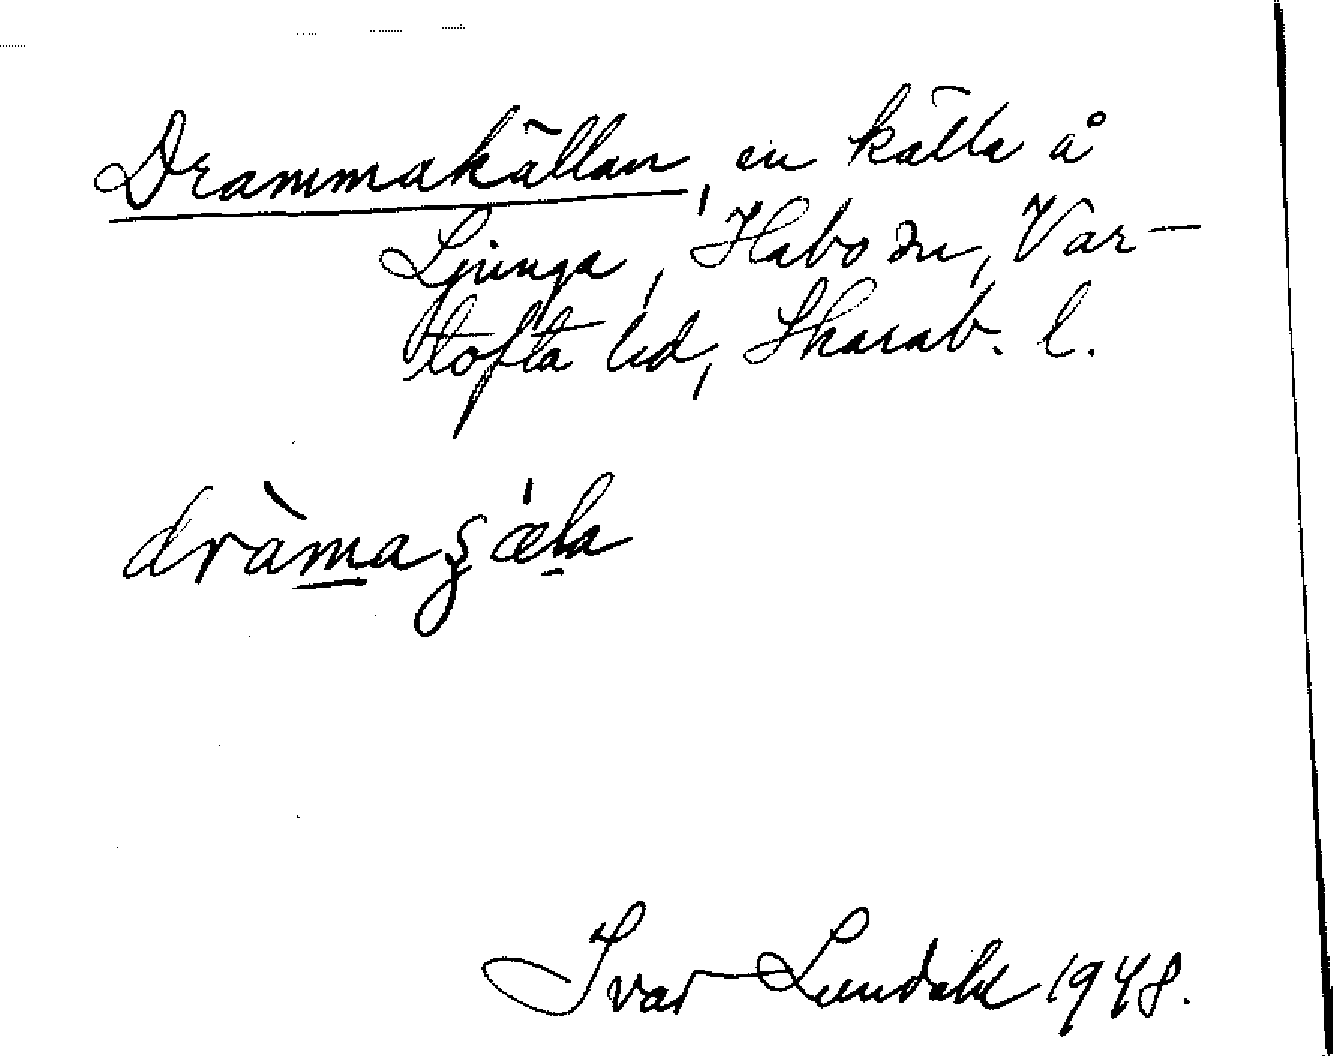 Drammakällan, en källa å
Ljunga, Habo sn, Var-
tofta hd, Skarab. l.
dràmaʂ́æla
Ivar Lundahl 1948.